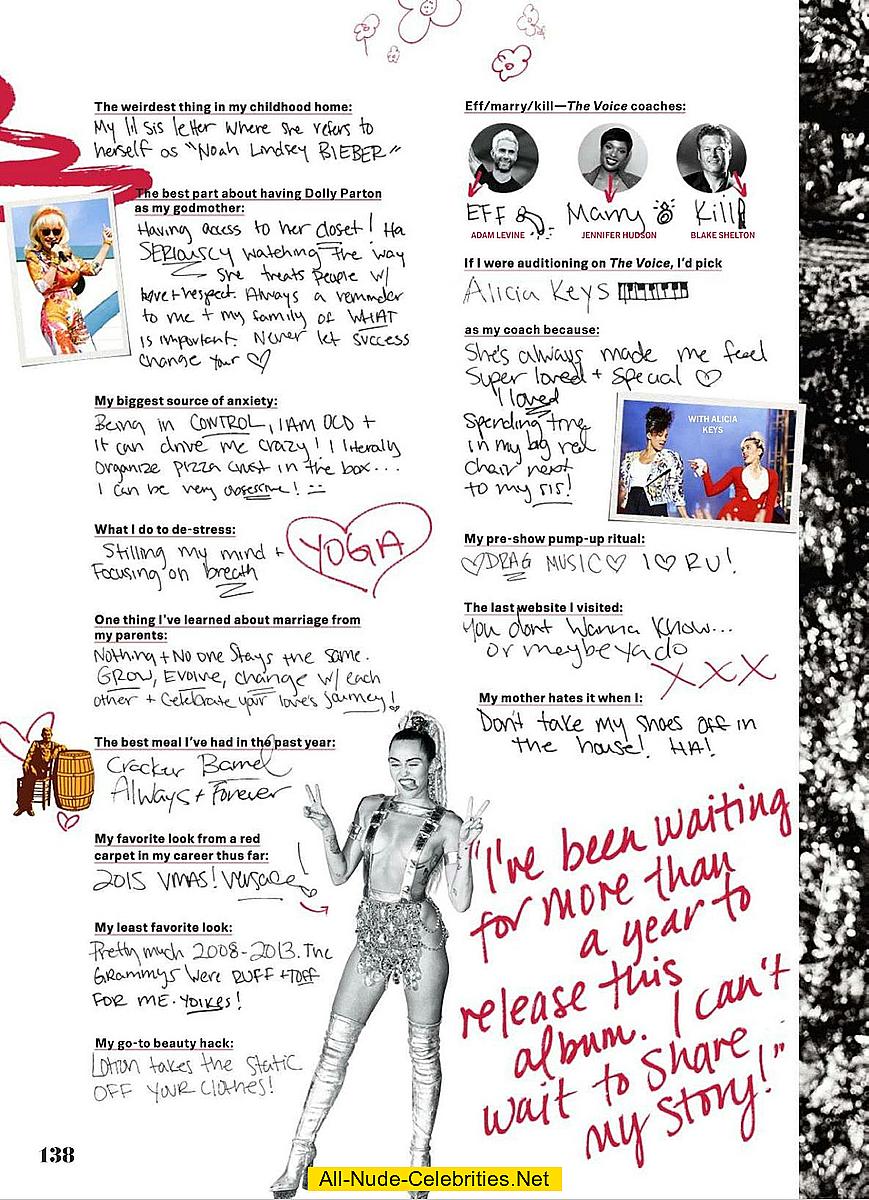 The weirdest thing in my childhood home:
My lil sis letter where she refers to
herself as "Noah Lindsey BIEBER"
The best part about having Dolly Parton
as my godmother:
Having access to her closet! Ha
SERIOUSLY watching the way
she treats people w/
love + respect. Always a reminder
to me + my family of WHAT
is important. Never let success
change your ♡
My biggest source of anxiety:
Being in CONTROL, I AM OCD +
It can drive me crazy! I literally
Organize pizza crust in the box...
I can be very obsessive!
What I do to de-stress:
Stilling my mind +
Focusing on breath
YOGA
One thing I've learned about marriage from
my parents:
Nothing + No one stays the same.
GROW, Evolve, change w/ each
other + Celebrate your love's journey!
The best meal I've had in the past year:
Cracker Barrel
Always + Forever
My favorite look from a red
carpet in my career thus far:
2015 VMAS! Versace!
My least favorite look:
Pretty much 2008-2013. The
Grammys were RUFF + TUFF
FOR ME. YOIKES!
My go-to beauty hack:
Lotion takes the static
OFF YOUR clothes!
138
Eff/marry/kill—The Voice coaches:
EFF Marry Kill
ADAM LEVINE JENNIFER HUDSON BLAKE SHELTON
If I were auditioning on The Voice, I'd pick
Alicia Keys
as my coach because:
She's always made me feel
Super loved + special ♡
I loved
Spending time
in my big red
chair next
to my sis!
WITH ALICIA
KEYS
My pre-show pump-up ritual:
♡DRAG MUSIC♡ I♡RU!
The last website I visited:
You dont wanna know...
or maybe ya do
XXX
My mother hates it when I:
Don't take my shoes off in
the house! HA!
"I've been waiting
for more than
a year to
release this
album. I can't
wait to share
my story!"
All-Nude-Celebrities.Net